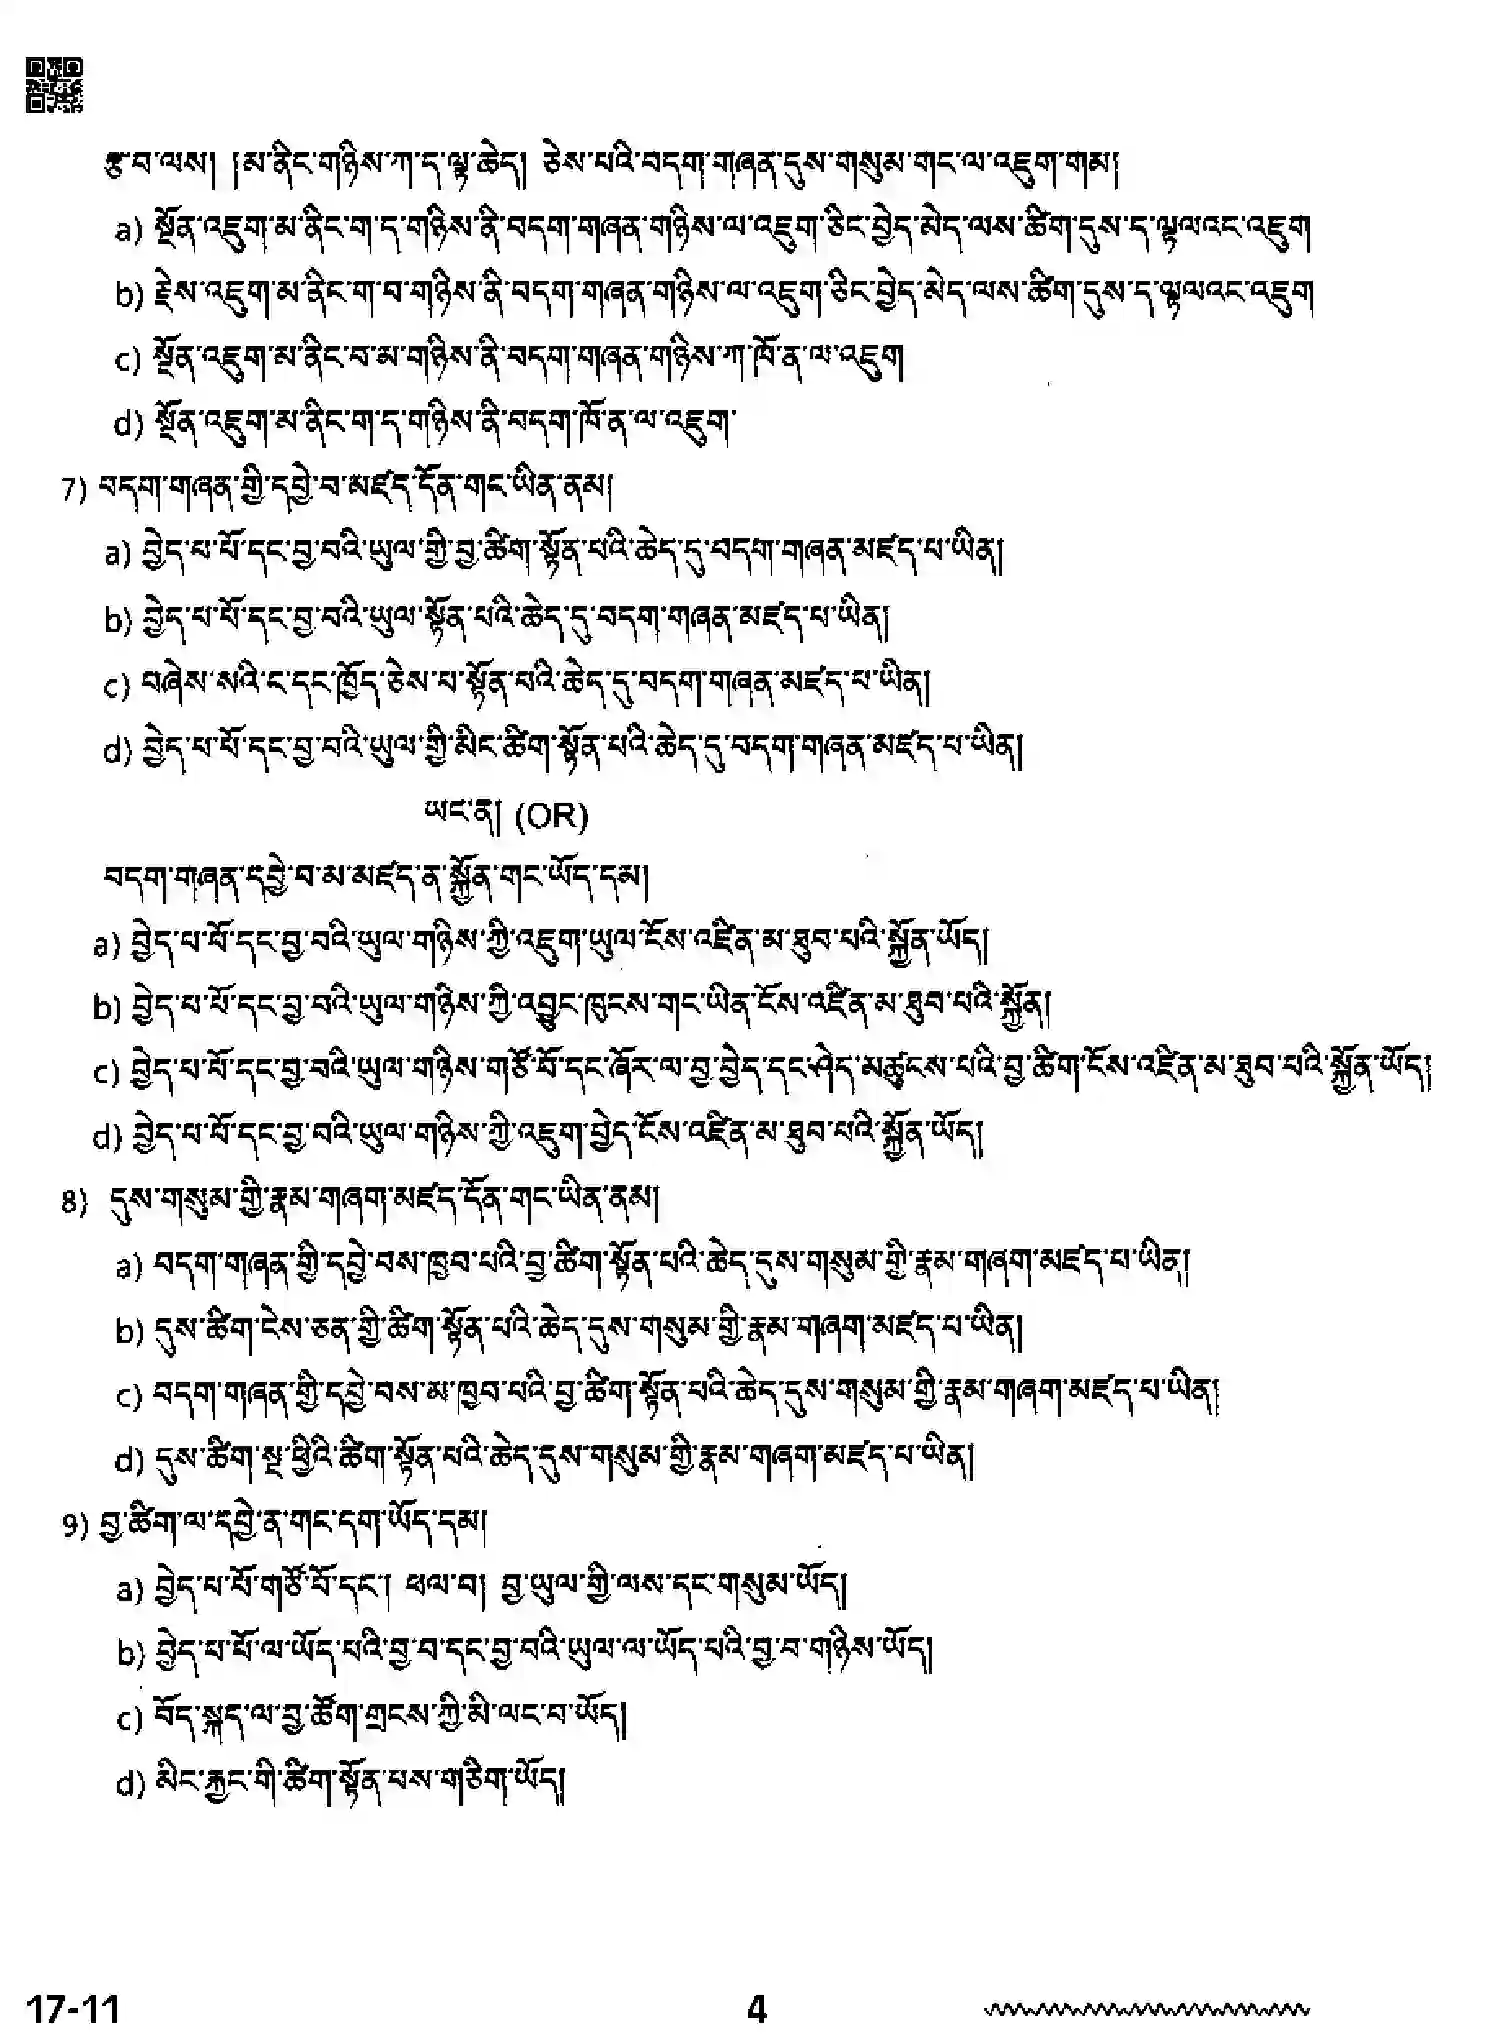 རྩ་བ་ལས། །མ་ནིང་གཉིས་ཀ་ད་ལྟ་ཆེད། ཅེས་པའི་བདག་གཞན་དུས་གསུམ་གང་ལ་འཇུག་གམ།
a) སྔོན་འཇུག་མ་ནིང་ག་ད་གཉིས་ནི་བདག་གཞན་གཉིས་ལ་འཇུག་ཅིང་བྱེད་མེད་ལས་ཚིག་དུས་ད་ལྟལའང་འཇུག
b) རྗེས་འཇུག་མ་ནིང་ག་བ་གཉིས་ནི་བདག་གཞན་གཉིས་ལ་འཇུག་ཅིང་བྱེད་མེད་ལས་ཚིག་དུས་ད་ལྟལའང་འཇུག
c) སྔོན་འཇུག་མ་ནིང་བ་མ་གཉིས་ནི་བདག་གཞན་གཉིས་ཀ་ཁོ་ན་ལ་འཇུག
d) སྔོན་འཇུག་མ་ནིང་ག་ད་གཉིས་ནི་བདག་ཁོ་ན་ལ་འཇུག་
7) བདག་གཞན་གྱི་དབྱེ་བ་མཛད་དོན་གང་ཡིན་ནམ།
a) བྱེད་པ་པོ་དང་བྱ་བའི་ཡུལ་གྱི་བྱ་ཚིག་སྟོན་པའི་ཆེད་དུ་བདག་གཞན་མཛད་པ་ཡིན།
b) བྱེད་པ་པོ་དང་བྱ་བའི་ཡུལ་སྟོན་པའི་ཆེད་དུ་བདག་གཞན་མཛད་པ་ཡིན།
c) བཞེས་སའི་ང་དང་ཁྱོད་ཅེས་པ་སྟོན་པའི་ཆེད་དུ་བདག་གཞན་མཛད་པ་ཡིན།
d) བྱེད་པ་པོ་དང་བྱ་བའི་ཡུལ་གྱི་མིང་ཚིག་སྟོན་པའི་ཆེད་དུ་བདག་གཞན་མཛད་པ་ཡིན།
ཡང་ན། (OR)
བདག་གཞན་དབྱེ་བ་མ་མཛད་ན་སྐྱོན་གང་ཡོད་དམ།
a) བྱེད་པ་པོ་དང་བྱ་བའི་ཡུལ་གཉིས་ཀྱི་འཇུག་ཡུལ་ངོས་འཛིན་མ་ཐུབ་པའི་སྐྱོན་ཡོད།
b) བྱེད་པ་པོ་དང་བྱ་བའི་ཡུལ་གཉིས་ཀྱི་འབྱུང་ཁུངས་གང་ཡིན་ངོས་འཛིན་མ་ཐུབ་པའི་སྐྱོན།
c) བྱེད་པ་པོ་དང་བྱ་བའི་ཡུལ་གཉིས་གཙོ་བོ་དང་ཞོར་ལ་བྱ་བྱེད་དང་ཤེད་མཚུངས་པའི་བྱ་ཚིག་ངོས་འཛིན་མ་ཐུབ་པའི་སྐྱོན་ཡོད།
d) བྱེད་པ་པོ་དང་བྱ་བའི་ཡུལ་གཉིས་ཀྱི་འཇུག་བྱེད་ངོས་འཛིན་མ་ཐུབ་པའི་སྐྱོན་ཡོད།
8) དུས་གསུམ་གྱི་རྣམ་གཞག་མཛད་དོན་གང་ཡིན་ནམ།
a) བདག་གཞན་གྱི་དབྱེ་བས་ཁྱབ་པའི་བྱ་ཚིག་སྟོན་པའི་ཆེད་དུས་གསུམ་གྱི་རྣམ་གཞག་མཛད་པ་ཡིན།
b) དུས་ཚིག་ངེས་ཅན་གྱི་ཚིག་སྟོན་པའི་ཆེད་དུས་གསུམ་གྱི་རྣམ་གཞག་མཛད་པ་ཡིན།
c) བདག་གཞན་གྱི་དབྱེ་བས་མ་ཁྱབ་པའི་བྱ་ཚིག་སྟོན་པའི་ཆེད་དུས་གསུམ་གྱི་རྣམ་གཞག་མཛད་པ་ཡིན།
d) དུས་ཚིག་སྔ་ཕྱིའི་ཚིག་སྟོན་པའི་ཆེད་དུས་གསུམ་གྱི་རྣམ་གཞག་མཛད་པ་ཡིན།
9) བྱ་ཚིག་ལ་དབྱེ་ན་གང་དག་ཡོད་དམ།
a) བྱེད་པ་པོ་གཙོ་བོ་དང་། ཕལ་བ། བྱ་ཡུལ་གྱི་ལས་དང་གསུམ་ཡོད།
b) བྱེད་པ་པོ་ལ་ཡོད་པའི་བྱ་བ་དང་བྱ་བའི་ཡུལ་ལ་ཡོད་པའི་བྱ་བ་གཉིས་ཡོད།
c) བོད་སྐད་ལ་བྱ་ཚོག་གྲངས་ཀྱི་མི་ལང་བ་ཡོད།
d) མིང་རྐྱང་གི་ཚིག་སྟོན་པས་གཅིག་ཡོད།
17-11
4